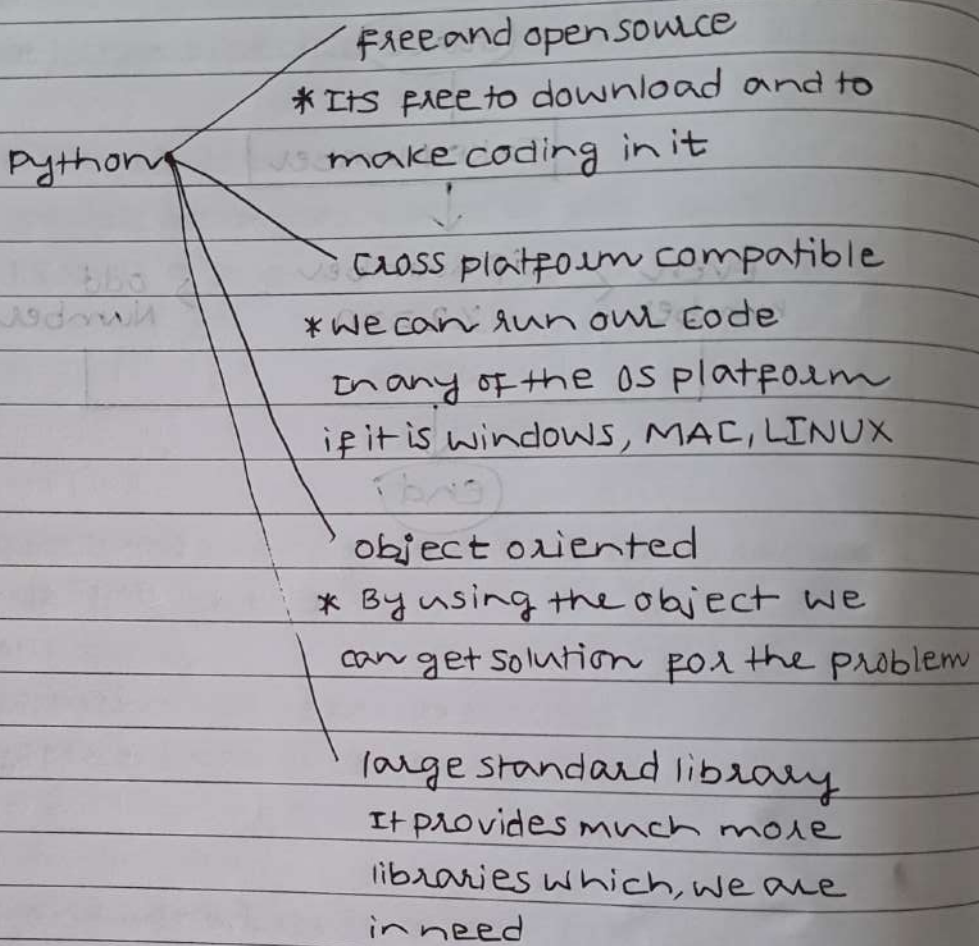 Free and open source
* Its free to download and to
Python
make coding in it
Cross platform compatible
* we can run our code
In any of the OS platform
if it is windows, MAC, LINUX
object oriented
* By using the object we
can get solution for the problem
large standard library
It provides much more
libraries which, we are
in need
odd
Number
End